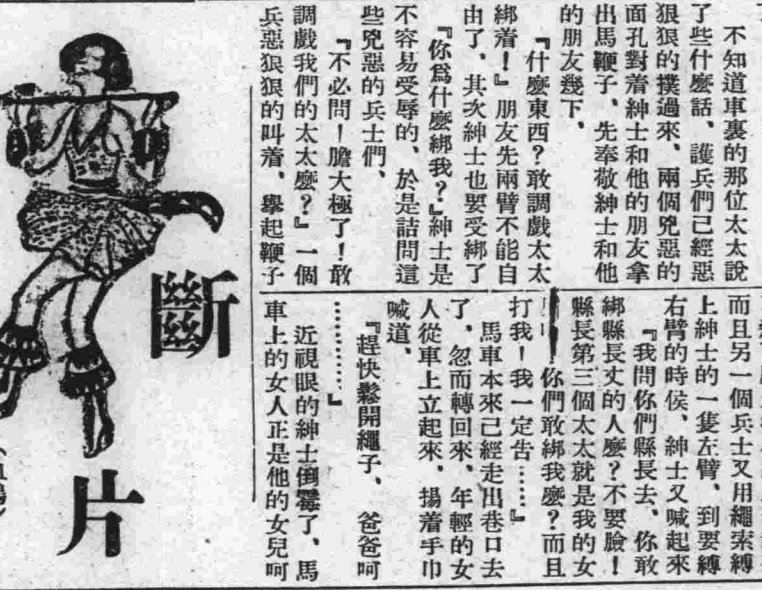 不知道車裏的那位太太說
了些什麼話、護兵們已經惡
狠狠的撲過來、兩個兇惡的
面孔對着紳士和他的朋友拿
出馬鞭子、先奉敬紳士和他
的朋友幾下、
『什麼東西?敢調戲太太
綁着!』朋友先兩臂不能自
由了、其次紳士也要受綁了
『你爲什麼綁我?』紳士是
不容易受辱的、於是詰問這
些兇惡的兵士們、
『不必問!膽大極了!敢
調戲我們的太太麼?』一個
兵惡狠狠的叫着、舉起鞭子
而且另一個兵士又用繩索縛
上紳士的一隻左臂、到要縛
右臂的時侯、紳士又喊起來
『我問你們縣長去、你敢
綁縣長丈的人麼?不要臉!
縣長第三個太太就是我的女
你們敢綁我麼?而且
打我!我一定告……』
馬車本來已經走出巷口去
了、忽而轉回來、年輕的女
人從車上立起來、揚着手巾
喊道、
『趕快鬆開繩子、爸爸呵
…………』
近視眼的紳士倒霉了、馬
車上的女人正是他的女兒呵
斷片